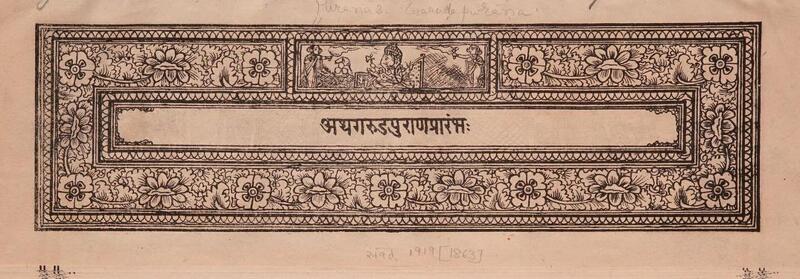 Purāṇas. Garuḍa purāṇa.
अथगरुडपुराणप्रारंभः
संवत् 1919 [1863]